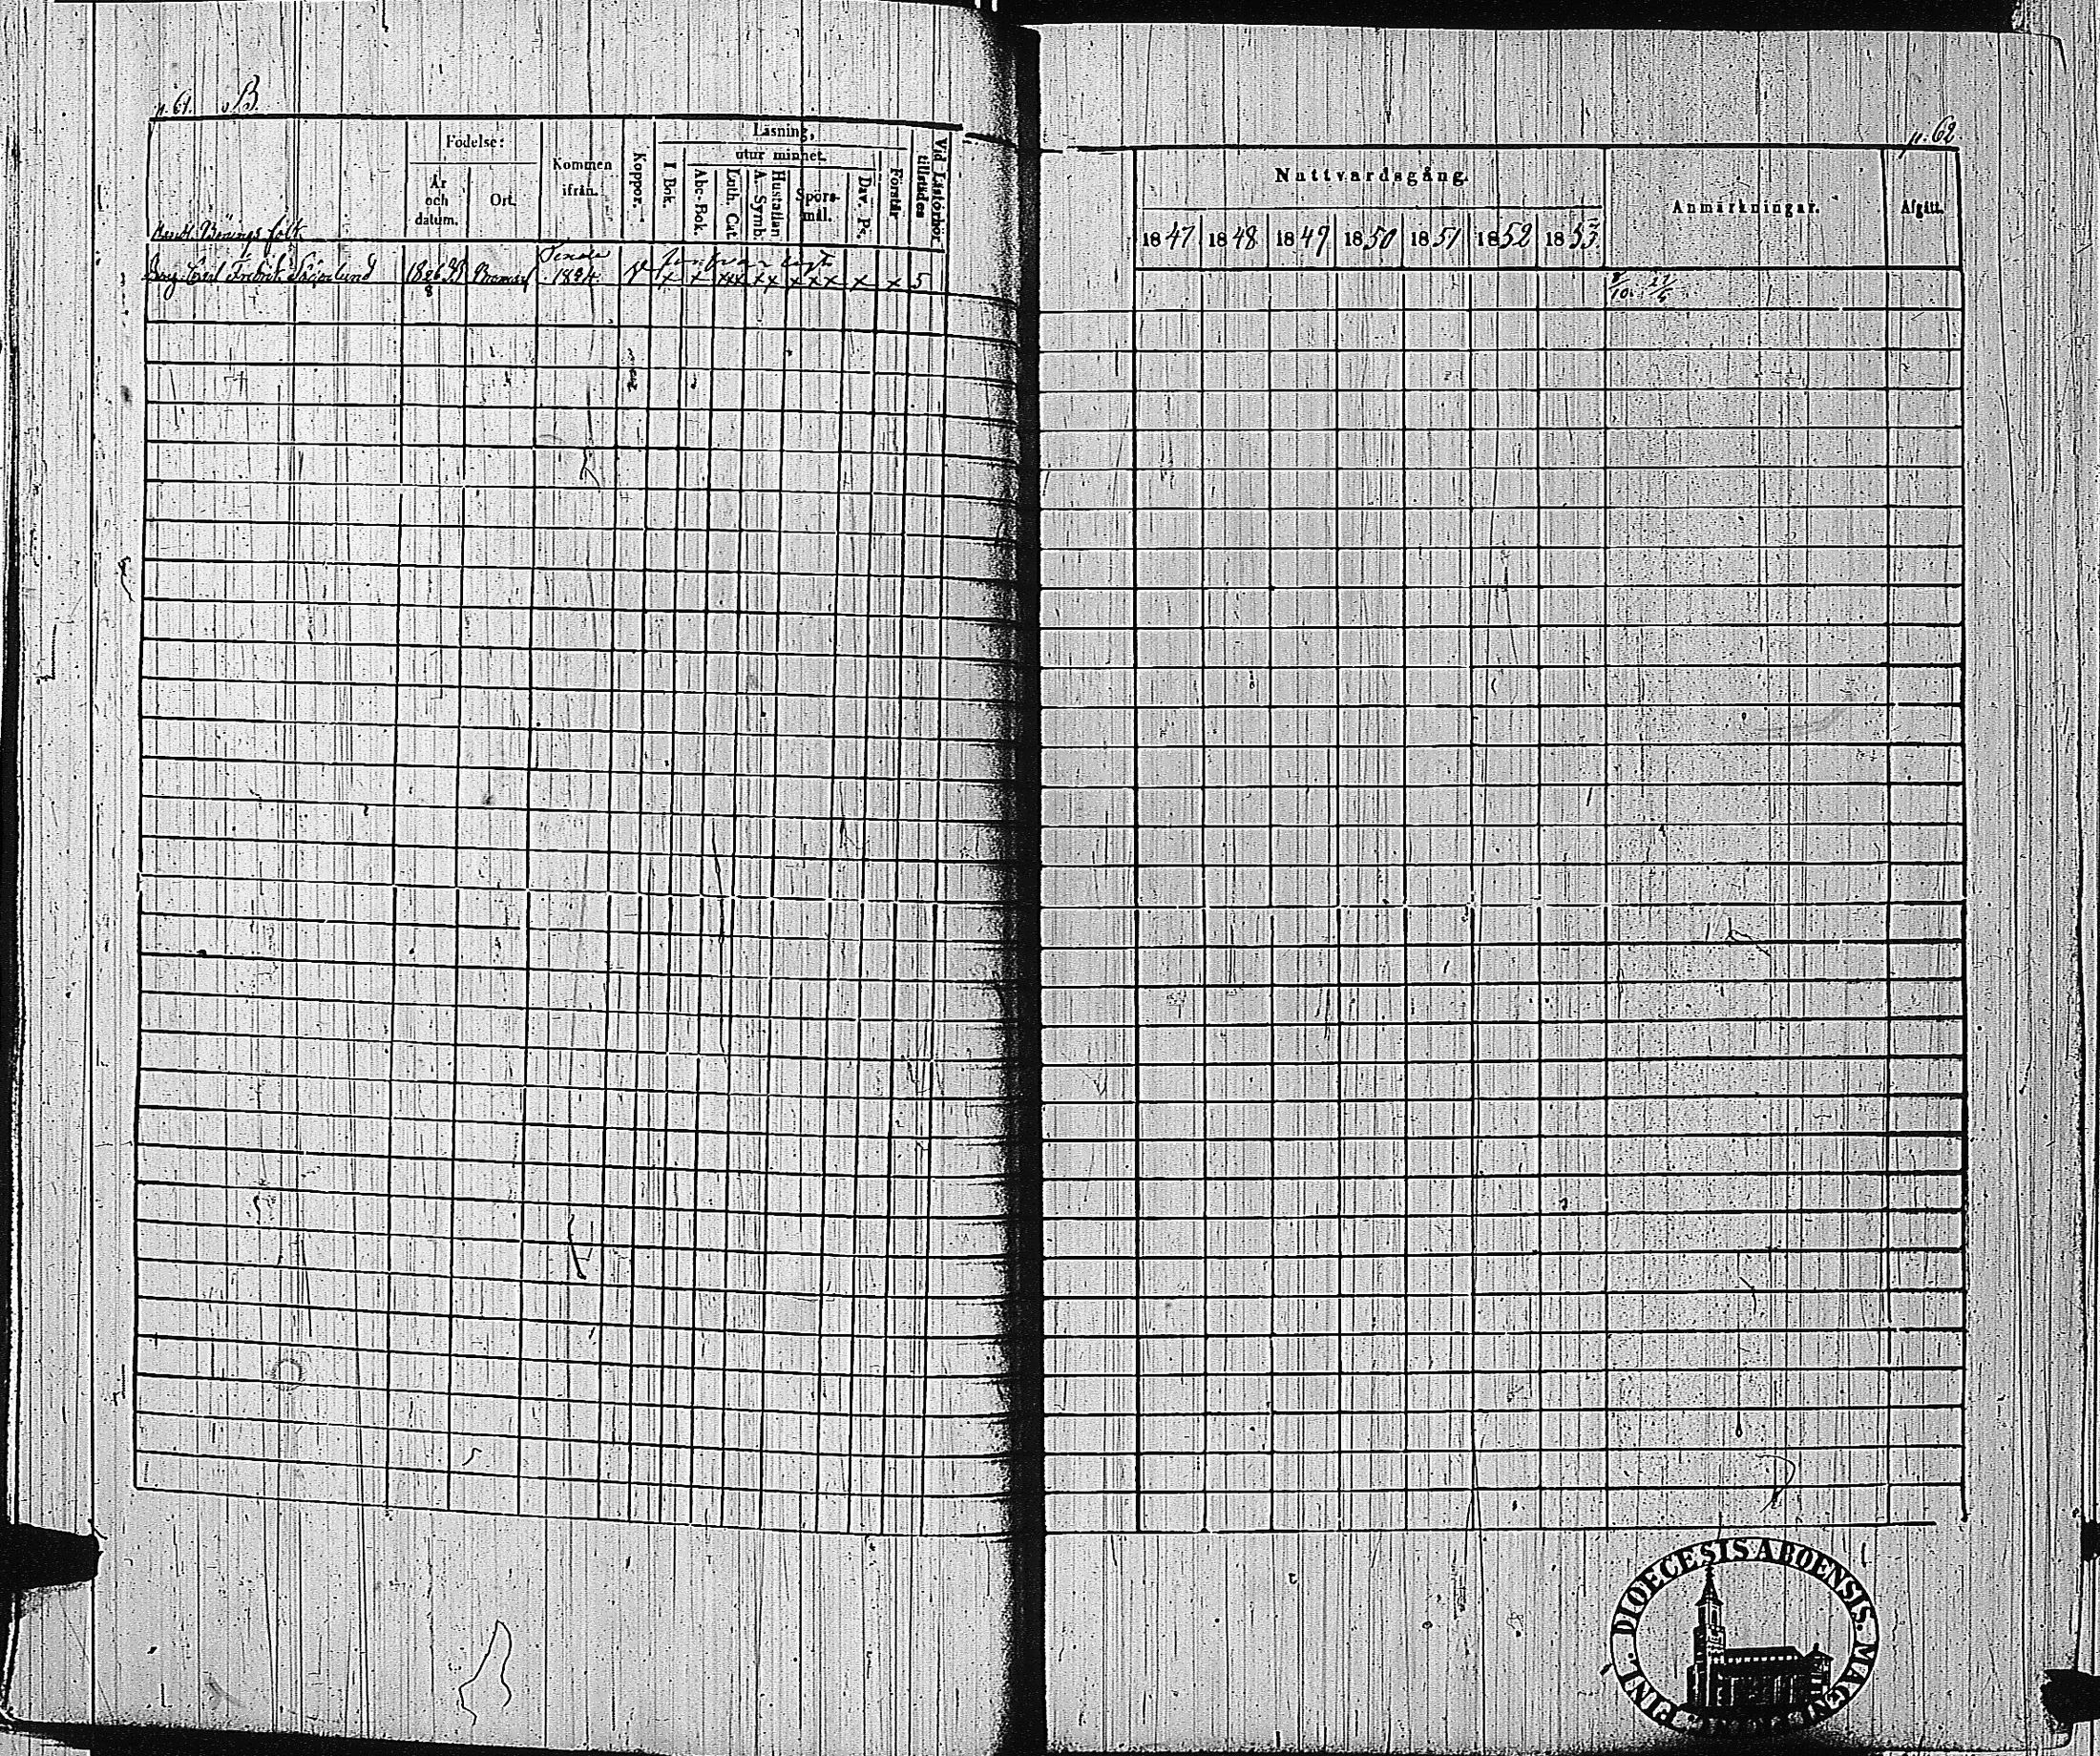 p. 61. B.
Födelse:
År och datum.
Ort.
Kommen ifrån.
Koppor.
Läsning,
utur minnet.
I Bok.
Abc-Bok.
Luth. Cat.
A. Symb.
Hustaflan
Spörsmål.
Dav. Ps.
Förstår
Vid Läsförhör tillstädes
folk
Carl Fredrik 1826 Bromarf 1824. x x xxx xx xxx x x 5
p. 62.
Nattvardsgång.
1847 1848 1849 1850 1851 1852 1853.
Anmärkningar.
Afgått.
8/10. 27/6
DIOECESIS ABOENSIS. MAGNI FINL.